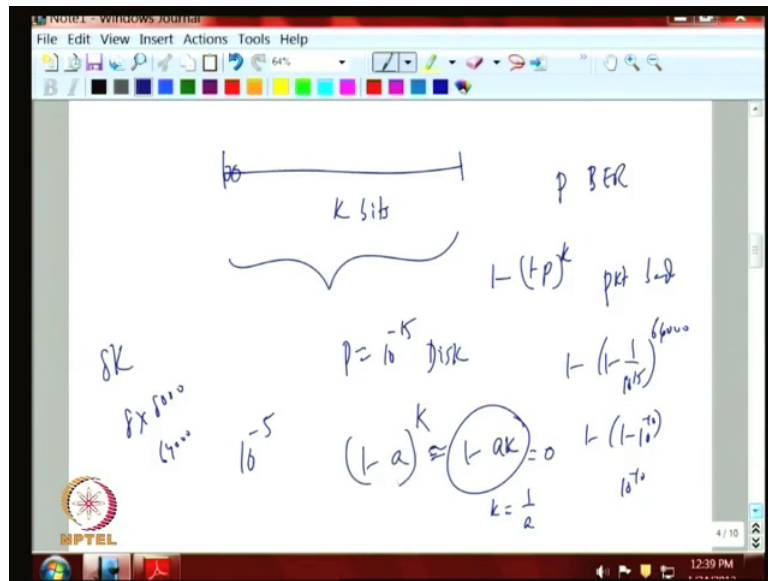 Note1 - Windows Journal
File Edit View Insert Actions Tools Help
64%
B I
K bits
p BER
1-(1-p)^k pkt bad
8K
8x8000
64000
P=10^-15 Disk
1-(1-1/10^15)^64000
10^-5
(1-a)^K ≅ 1-ak = 0
k=1/a
1-(1-10^-10)
10^-10
NPTEL
4/10
12:39 PM